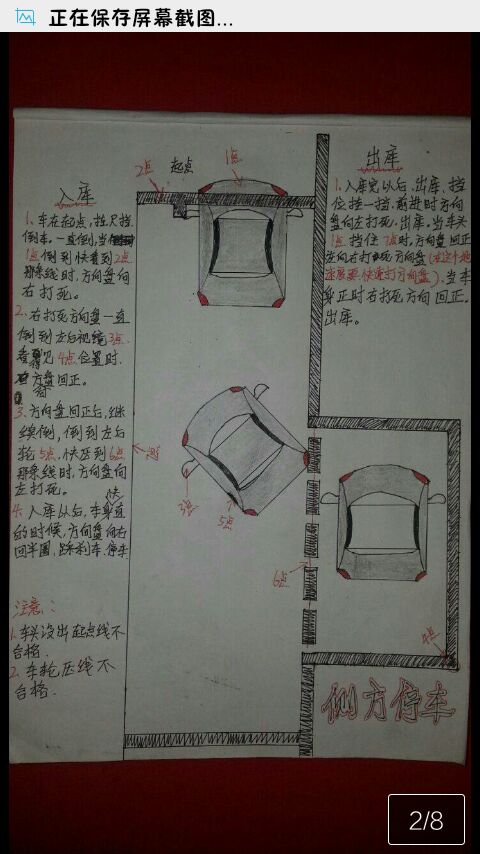 正在保存屏幕截图...
入库
1. 车在起点，挂R挡
倒车。一直倒，当
1点倒到快看到2点
那条线时，方向盘向
右打死。
2. 右打死方向盘一直
倒到左后视镜3点
看见4点位置时，
方盘回正。
3. 方向盘回正后，继
续倒，倒到左后
轮5点，快压到6点
那条线时，方向盘向
左打死。
4. 入库以后，车身快直
的时候，方向盘向右
回半圈，踩刹车.停车
注意：
1. 车头没出起点线不
合格.
2. 车轮压线不
合格.
2点
起点
1点
3点
5点
6点
4点
出库
1. 入库完以后，出库，挡
位挂一挡，前进时方向
盘向左打死，出库，当车头
1点挡住7点时，方向盘回正
在向右打死方向盘
当车
身正时右打死方向回正.
出库。
侧方停车
2/8